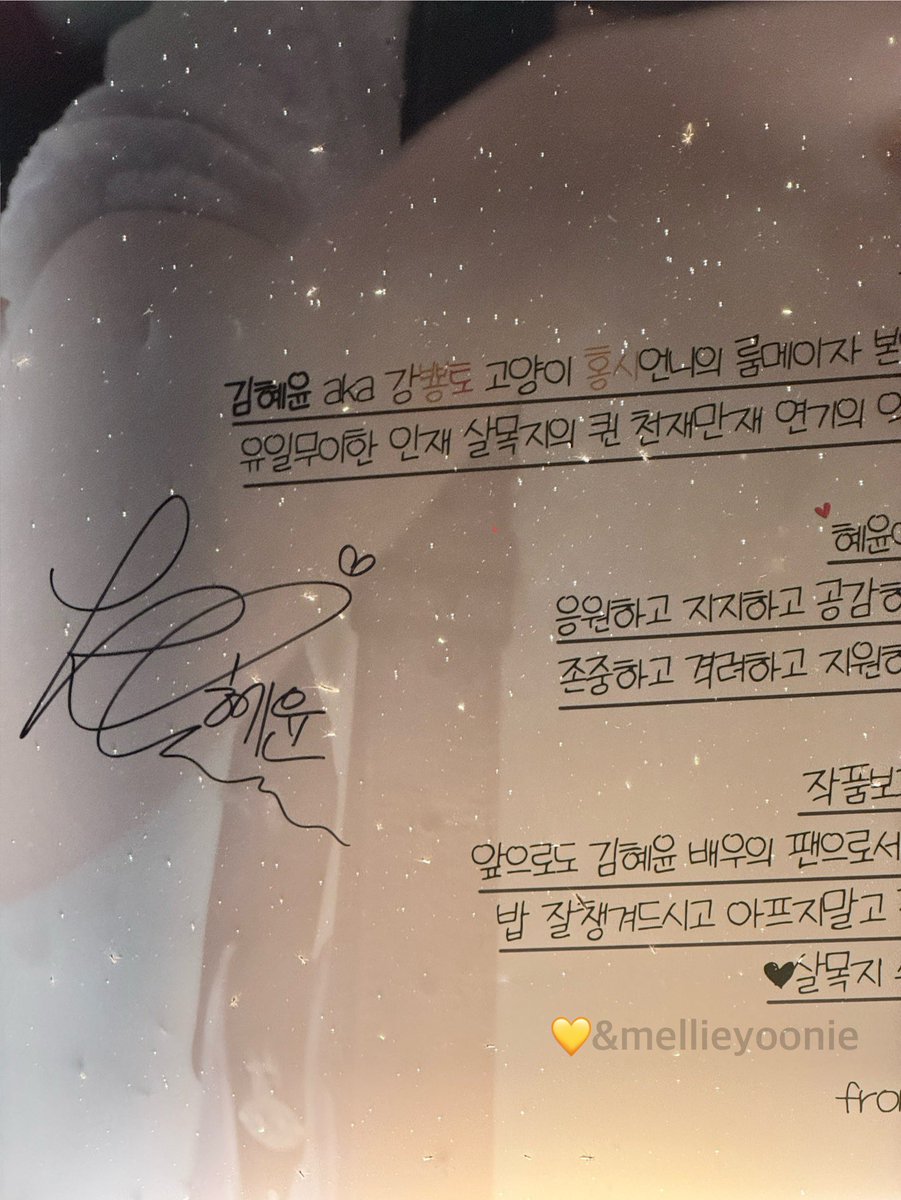 김혜윤 aka 강뿅토 고양이 홍시언니의 룸메이자 본
유일무이한 인재 살목지의 퀸 천재만재 연기의
혜윤
응원하고 지지하고 공감하
존중하고 격려하고 지원하
혜윤
작품보
앞으로도 김혜윤 배우의 팬으로서
밥 잘챙겨드시고 아프지말고
♥살목지
💛&mellieyoonie
from